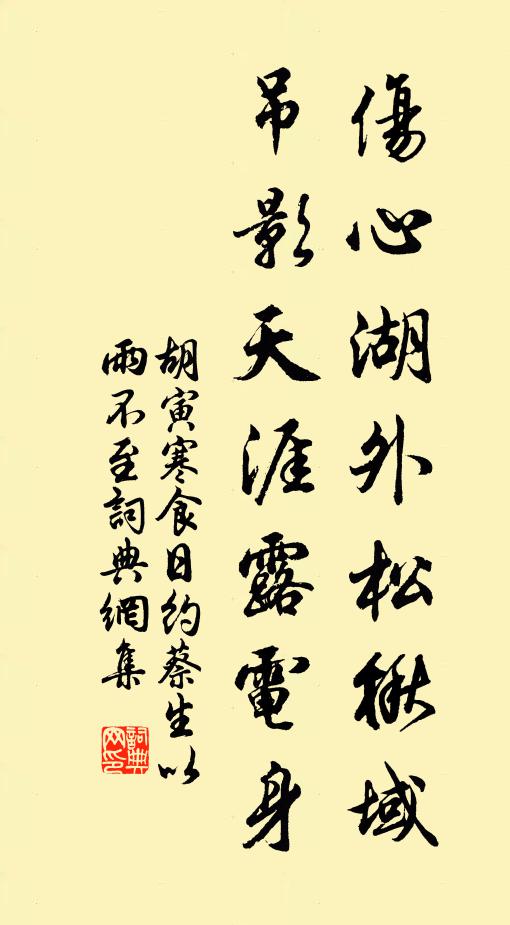 傷心湖外松楸域
吊影天涯露電身
胡寅寒食日約蔡生以
雨不至詞典網集
詞典
网印